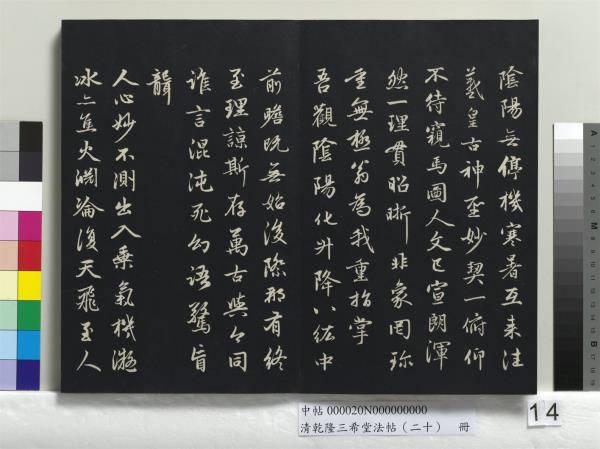 陰陽无停機寒暑互来往
羲皇古神聖妙契一俯仰
不待窺馬圖人文已宣朗渾
然一理貫昭晰非象罔珍
重無極翁為我重指掌
吾觀陰陽化升降八紘中
前瞻既無始後際那有終
至理諒斯存萬古與今同
誰言混沌死幻語驚盲
聾
人心妙不測出入乘氣機凝
冰亦焦火淵淪復天飛至人
中帖 000020N000000000
清乾隆三希堂法帖（二十） 冊
14